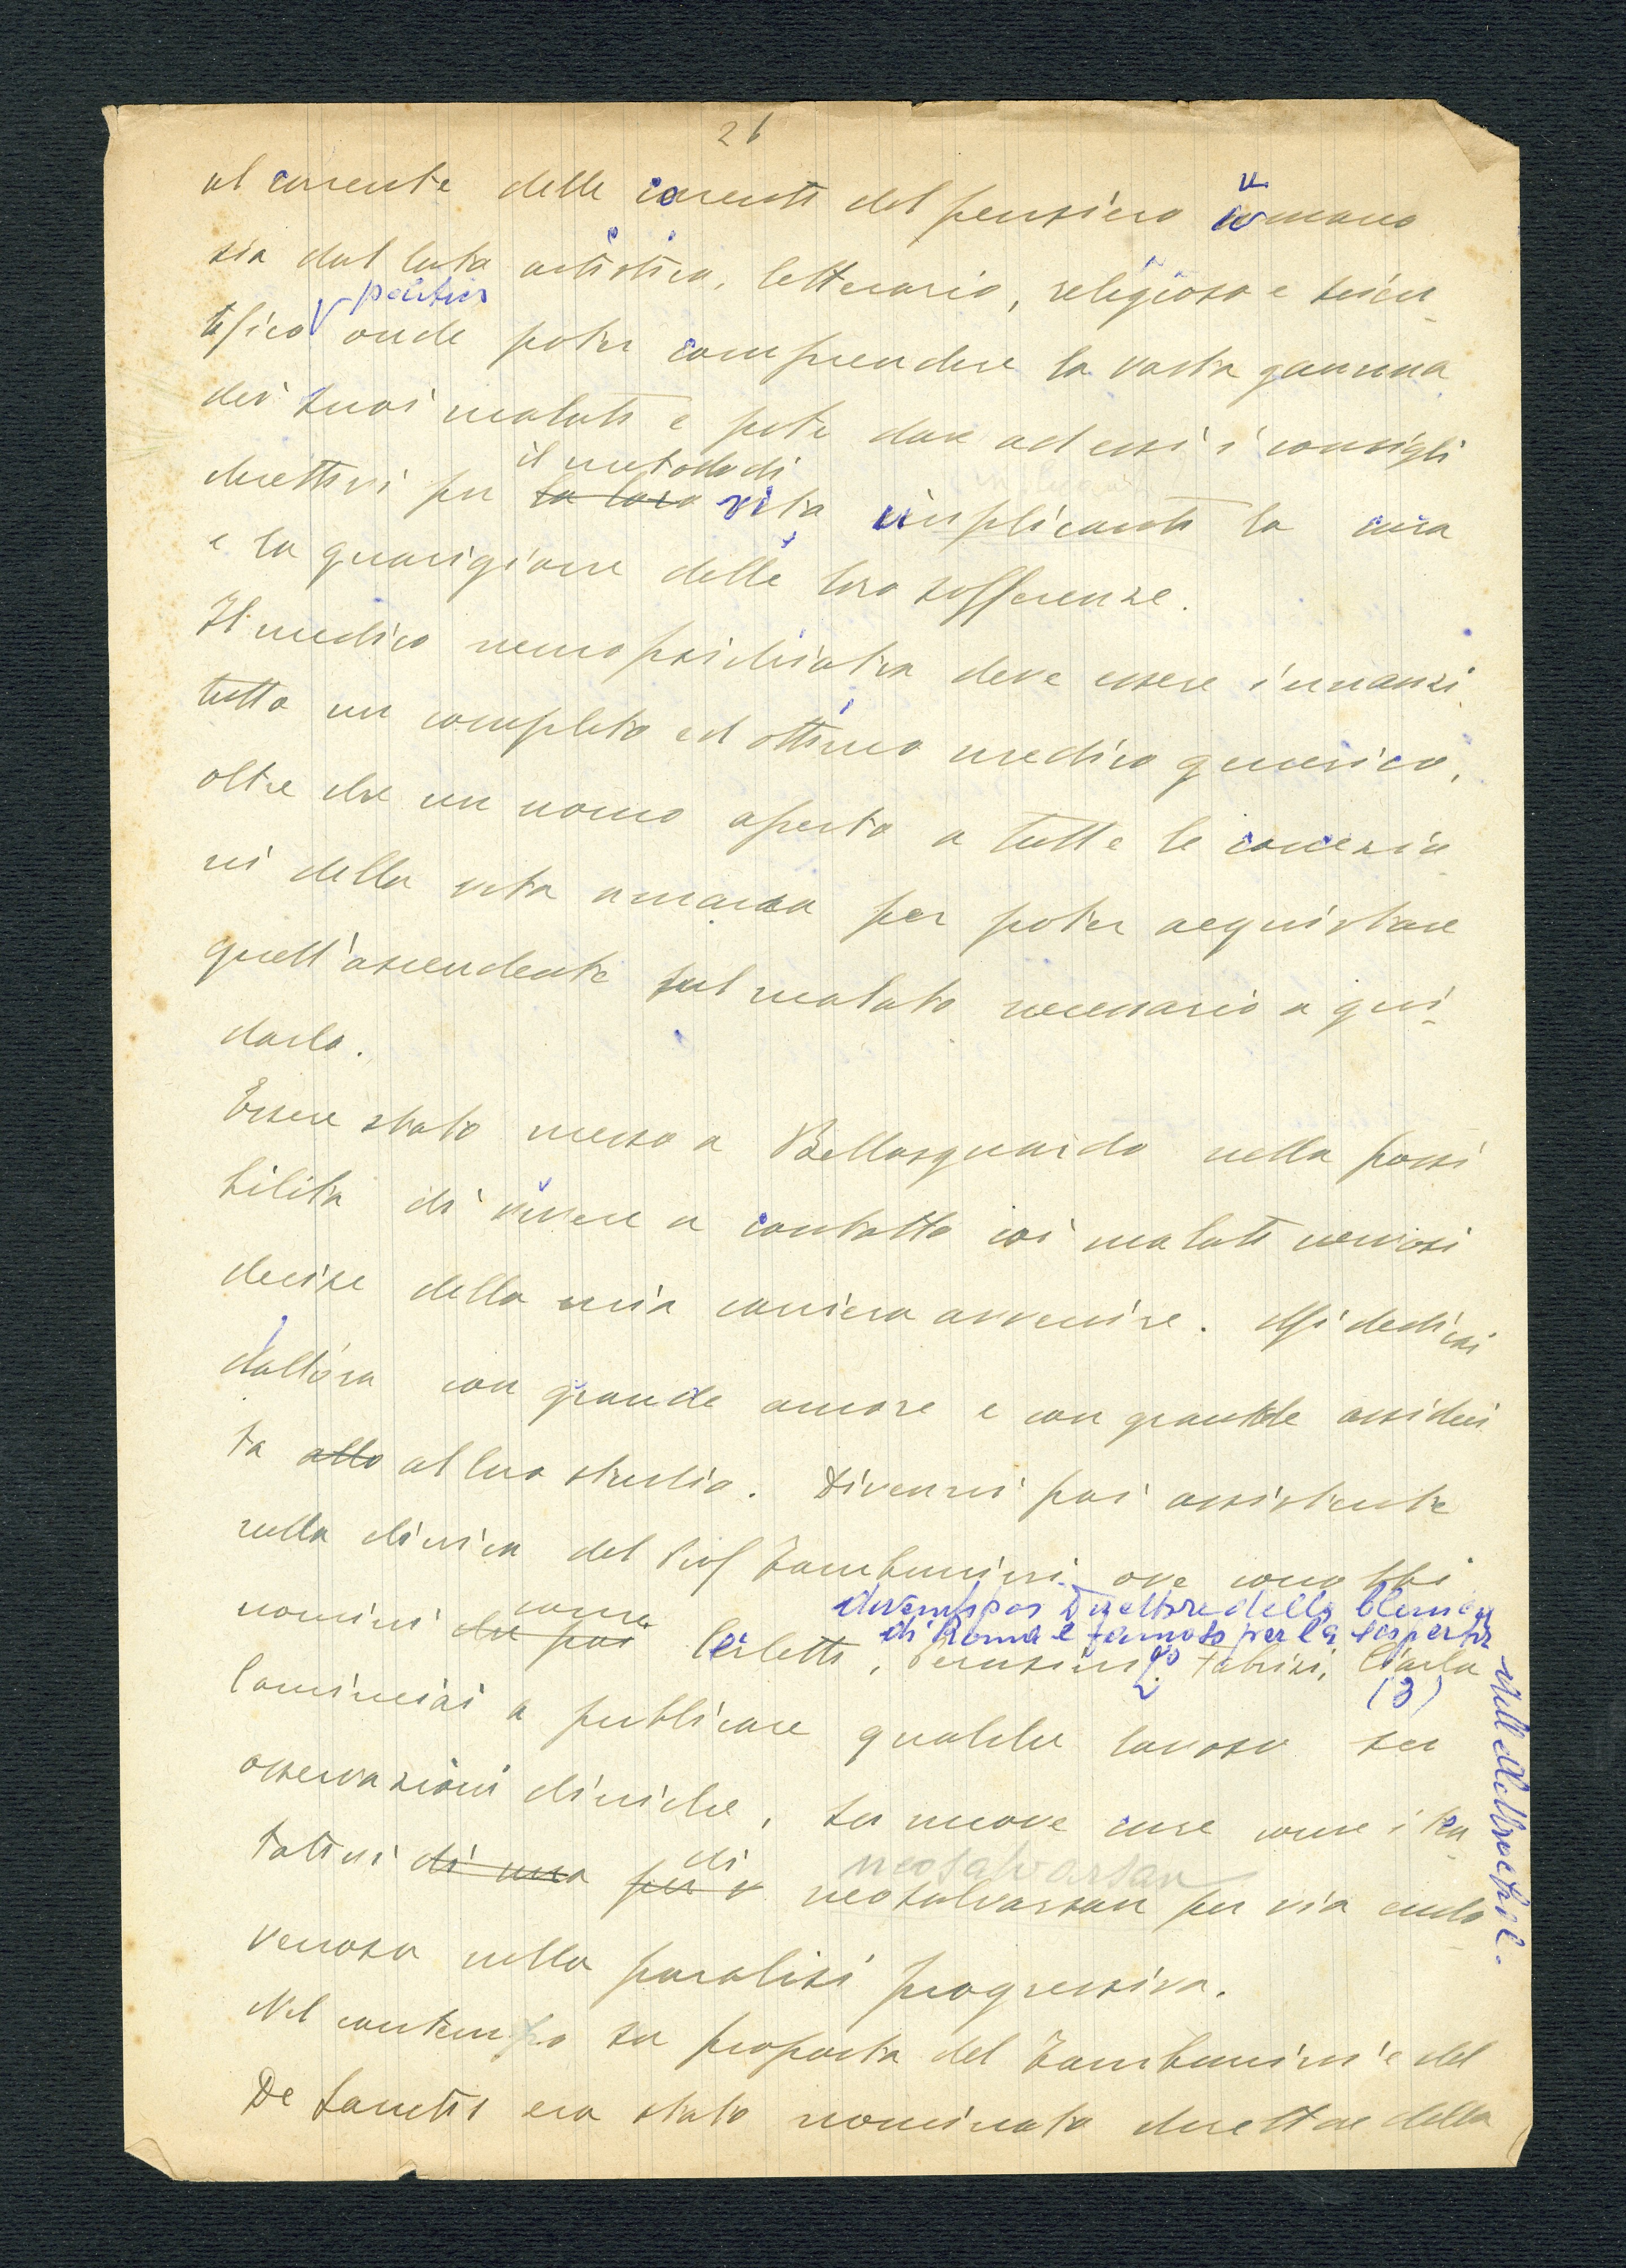 26
al corrente delle correnti del pensiero umano
sia dal lato artistico, letterario, religioso e scien-
tifico politico onde poter comprendere la vasta gamma
dei suoi malati e poter dare ad essi i consigli
il metodo di
direttivi per la loro vita implicanti la cura
e la guarigione delle loro sofferenze.
Il medico neuropsichiatra deve essere innanzi
tutto un completo ed ottimo medico generico,
oltre che un uomo aperto a tutte le concezio-
ni della vita umana per poter acquistare
quell'ascendente sul malato necessario a gui-
darlo.
Essere stato messo a Bellosguardo nella possi
bilità di vivere a contatto coi malati nervosi
decise della mia carriera avvenire. Mi dedicai
dallora con grande amore e con grande assidui
ta allo al loro studio. Divenni poi assistente
nella clinica del Prof Tamburini ove conobbi
divenuto poi Direttore della Clinica
di Roma e famoso per la scoperta
dell'elettroshock.
uomini che poi come Cerletti, Perusini, Fabrizi, Ciarla
(3)
Cominciai a pubblicare qualche lavoro su
osservazioni cliniche, su nuove cure come i ten
neosalvarsan
tativi di una per v di neosalvarsan per via endo
venosa nella paralisi progressiva.
Nel contempo su proposta del Tamburini e del
De Sanctis ero stato nominato direttore della